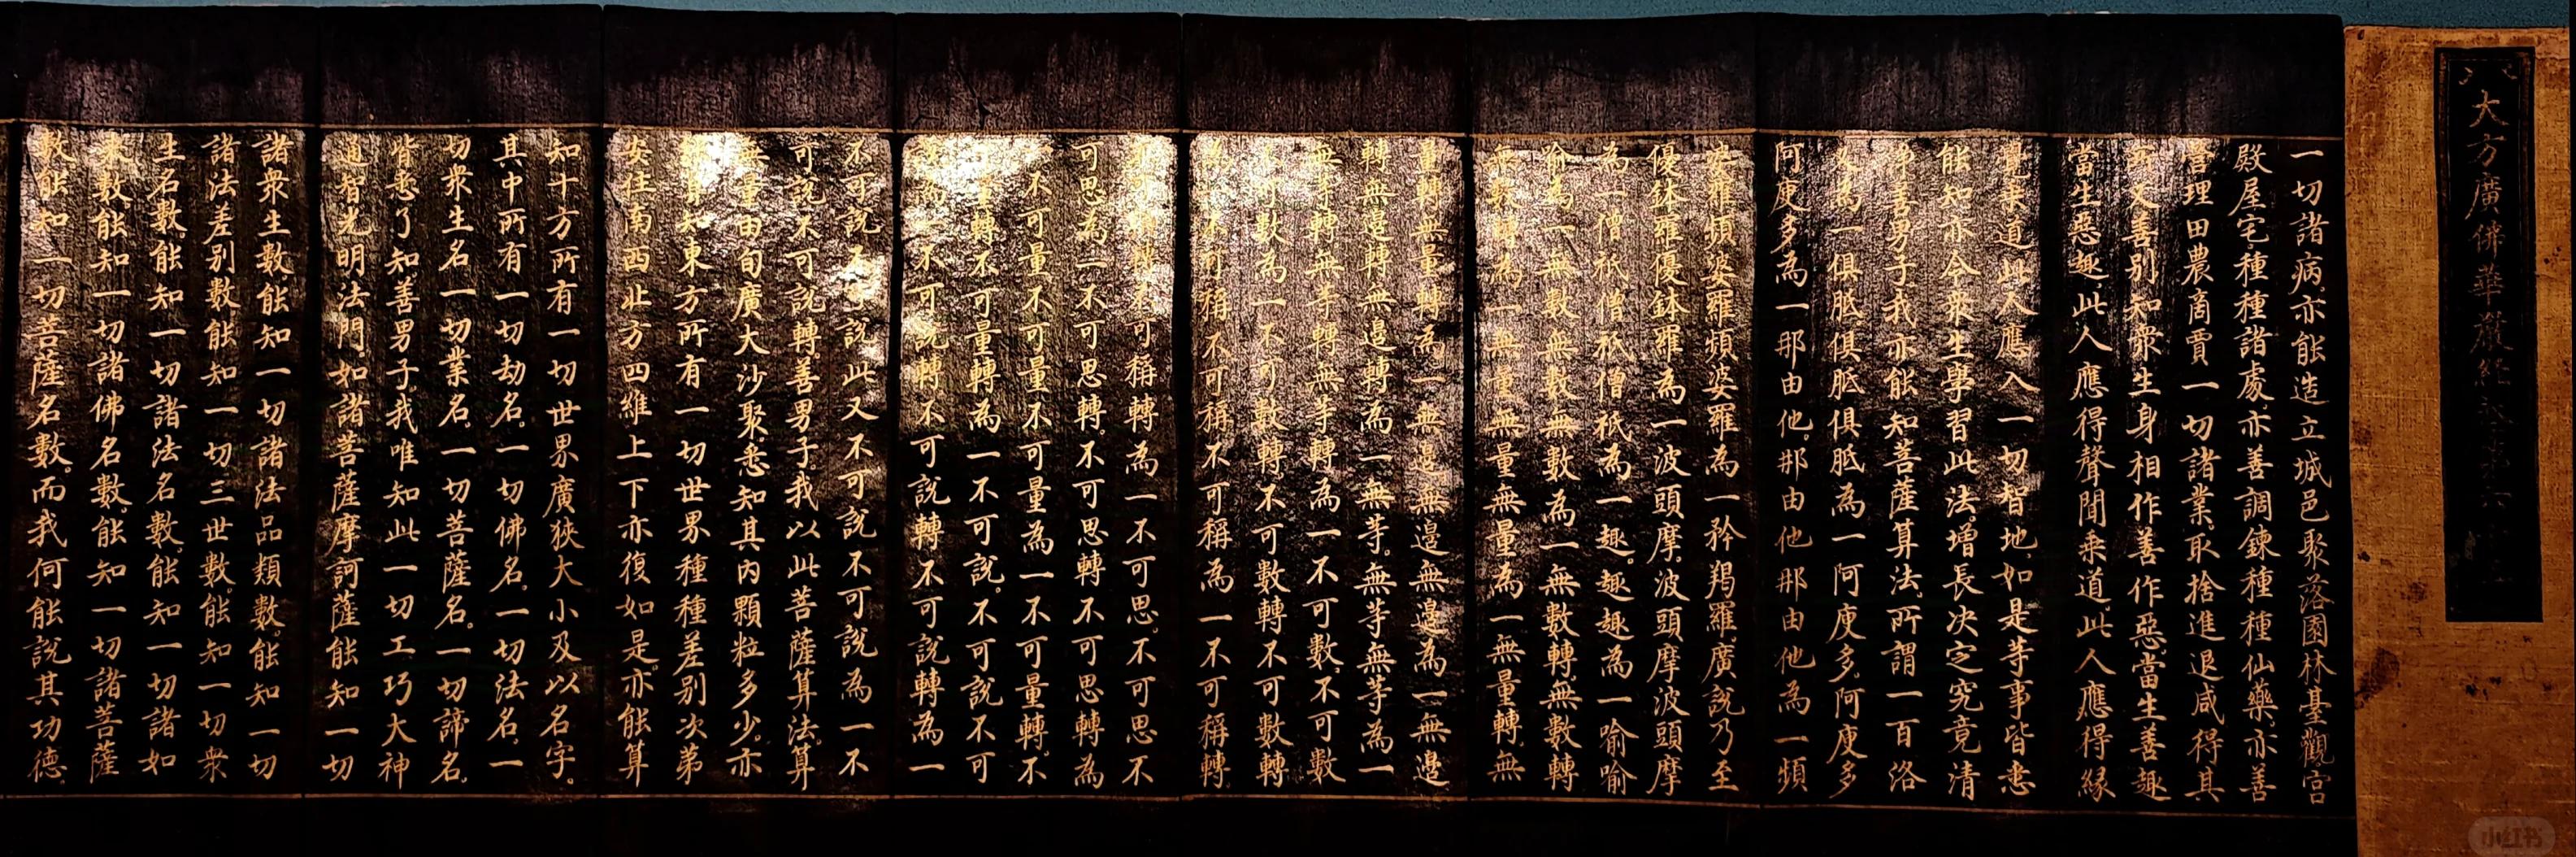 大方廣佛華嚴經
一切諸病。亦能造立城邑聚落園林臺觀宮
殿屋宅種種諸處。亦善調鍊種種仙藥。亦善
營理田農商賈一切諸業。取捨進退咸得其
所。又善別知衆生身相作善作惡。當生善趣
當生惡趣。此人應得聲聞乘道。此人應得緣
覺乘道。此人應入一切智地。如是等事皆悉
能知。亦令衆生學習此法。增長決定究竟清
淨。善男子。我亦能知菩薩算法。所謂一百洛
叉為一俱胝。俱胝俱胝為一阿庾多。阿庾多
阿庾多為一那由他。那由他那由他為一頻
婆羅。頻婆羅頻婆羅為一矜羯羅。廣說乃至
優鉢羅優鉢羅為一波頭摩。波頭摩波頭摩
為一僧祇。僧祇僧祇為一趣。趣趣為一喻。喻
喻為一無數。無數無數為一無數轉。無數轉
無數轉為一無量。無量無量為一無量轉。無
量轉無量轉為一無邊。無邊無邊為一無邊
轉。無邊轉無邊轉為一無等。無等無等為一
無等轉。無等轉無等轉為一不可數。不可數
不可數為一不可數轉。不可數轉不可數轉
為一不可稱。不可稱不可稱為一不可稱轉。
不可稱轉不可稱轉為一不可思。不可思不
可思為一不可思轉。不可思轉不可思轉為
一不可量。不可量不可量為一不可量轉。不
可量轉不可量轉為一不可說。不可說不可
說為一不可說轉。不可說轉不可說轉為一
不可說不可說。此又不可說不可說為一不
可說不可說轉。善男子。我以此菩薩算法。算
無量由旬廣大沙聚。悉知其內顆粒多少。亦
能算知東方所有一切世界種種差別次第
安住。南西北方四維上下亦復如是。亦能算
知十方所有一切世界廣狹大小及以名字。
其中所有一切劫名。一切佛名。一切法名。一
切衆生名。一切業名。一切菩薩名。一切諦名。
皆悉了知。善男子。我唯知此一切工巧大神
通智光明法門。如諸菩薩摩訶薩能知一切
諸衆生數。能知一切諸法品類數。能知一切
諸法差別數。能知一切三世數。能知一切衆
生名數。能知一切諸法名數。能知一切諸如
來數。能知一切諸佛名數。能知一切諸菩薩
數。能知一切菩薩名數。而我何能說其功德。
小红书